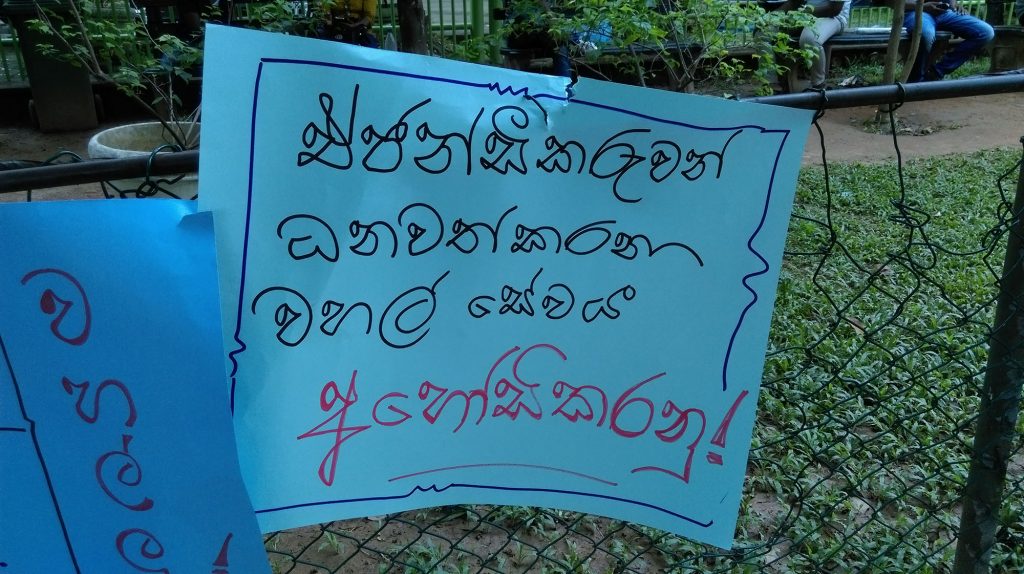 ඒජන්සිකරුවන්
ධනවත් කරනා
වහල් සේවය
අහෝසි කරනු!
ව
හ
ල්
ල
!